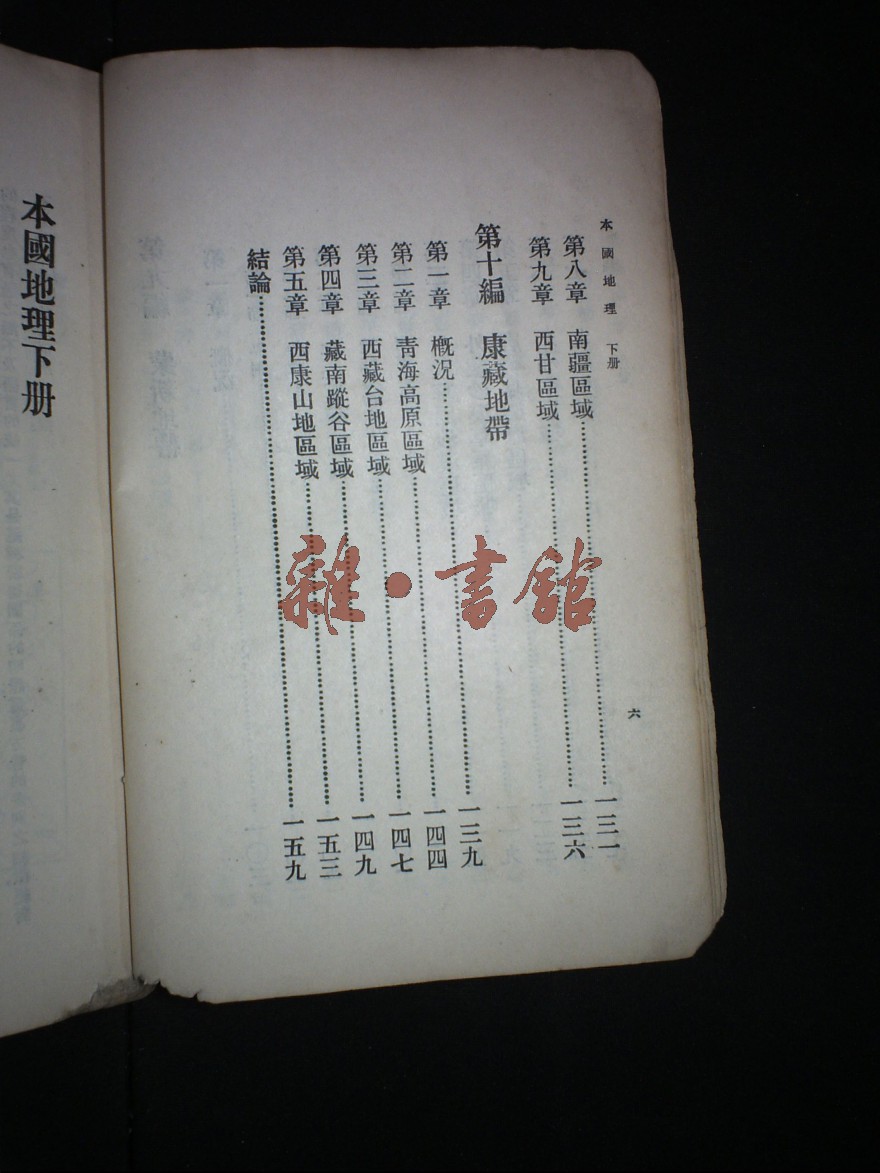 本國地理 下册
六
第八章 南疆區域……一三一
第九章 西甘區域……一三六
第十編 康藏地帶
第一章 概況……一三九
第二章 靑海高原區域……一四四
第三章 西藏台地區域……一四七
第四章 藏南蹤谷區域……一四九
第五章 西康山地區域……一五三
結論……一五九
本國地理下册
雜·書館